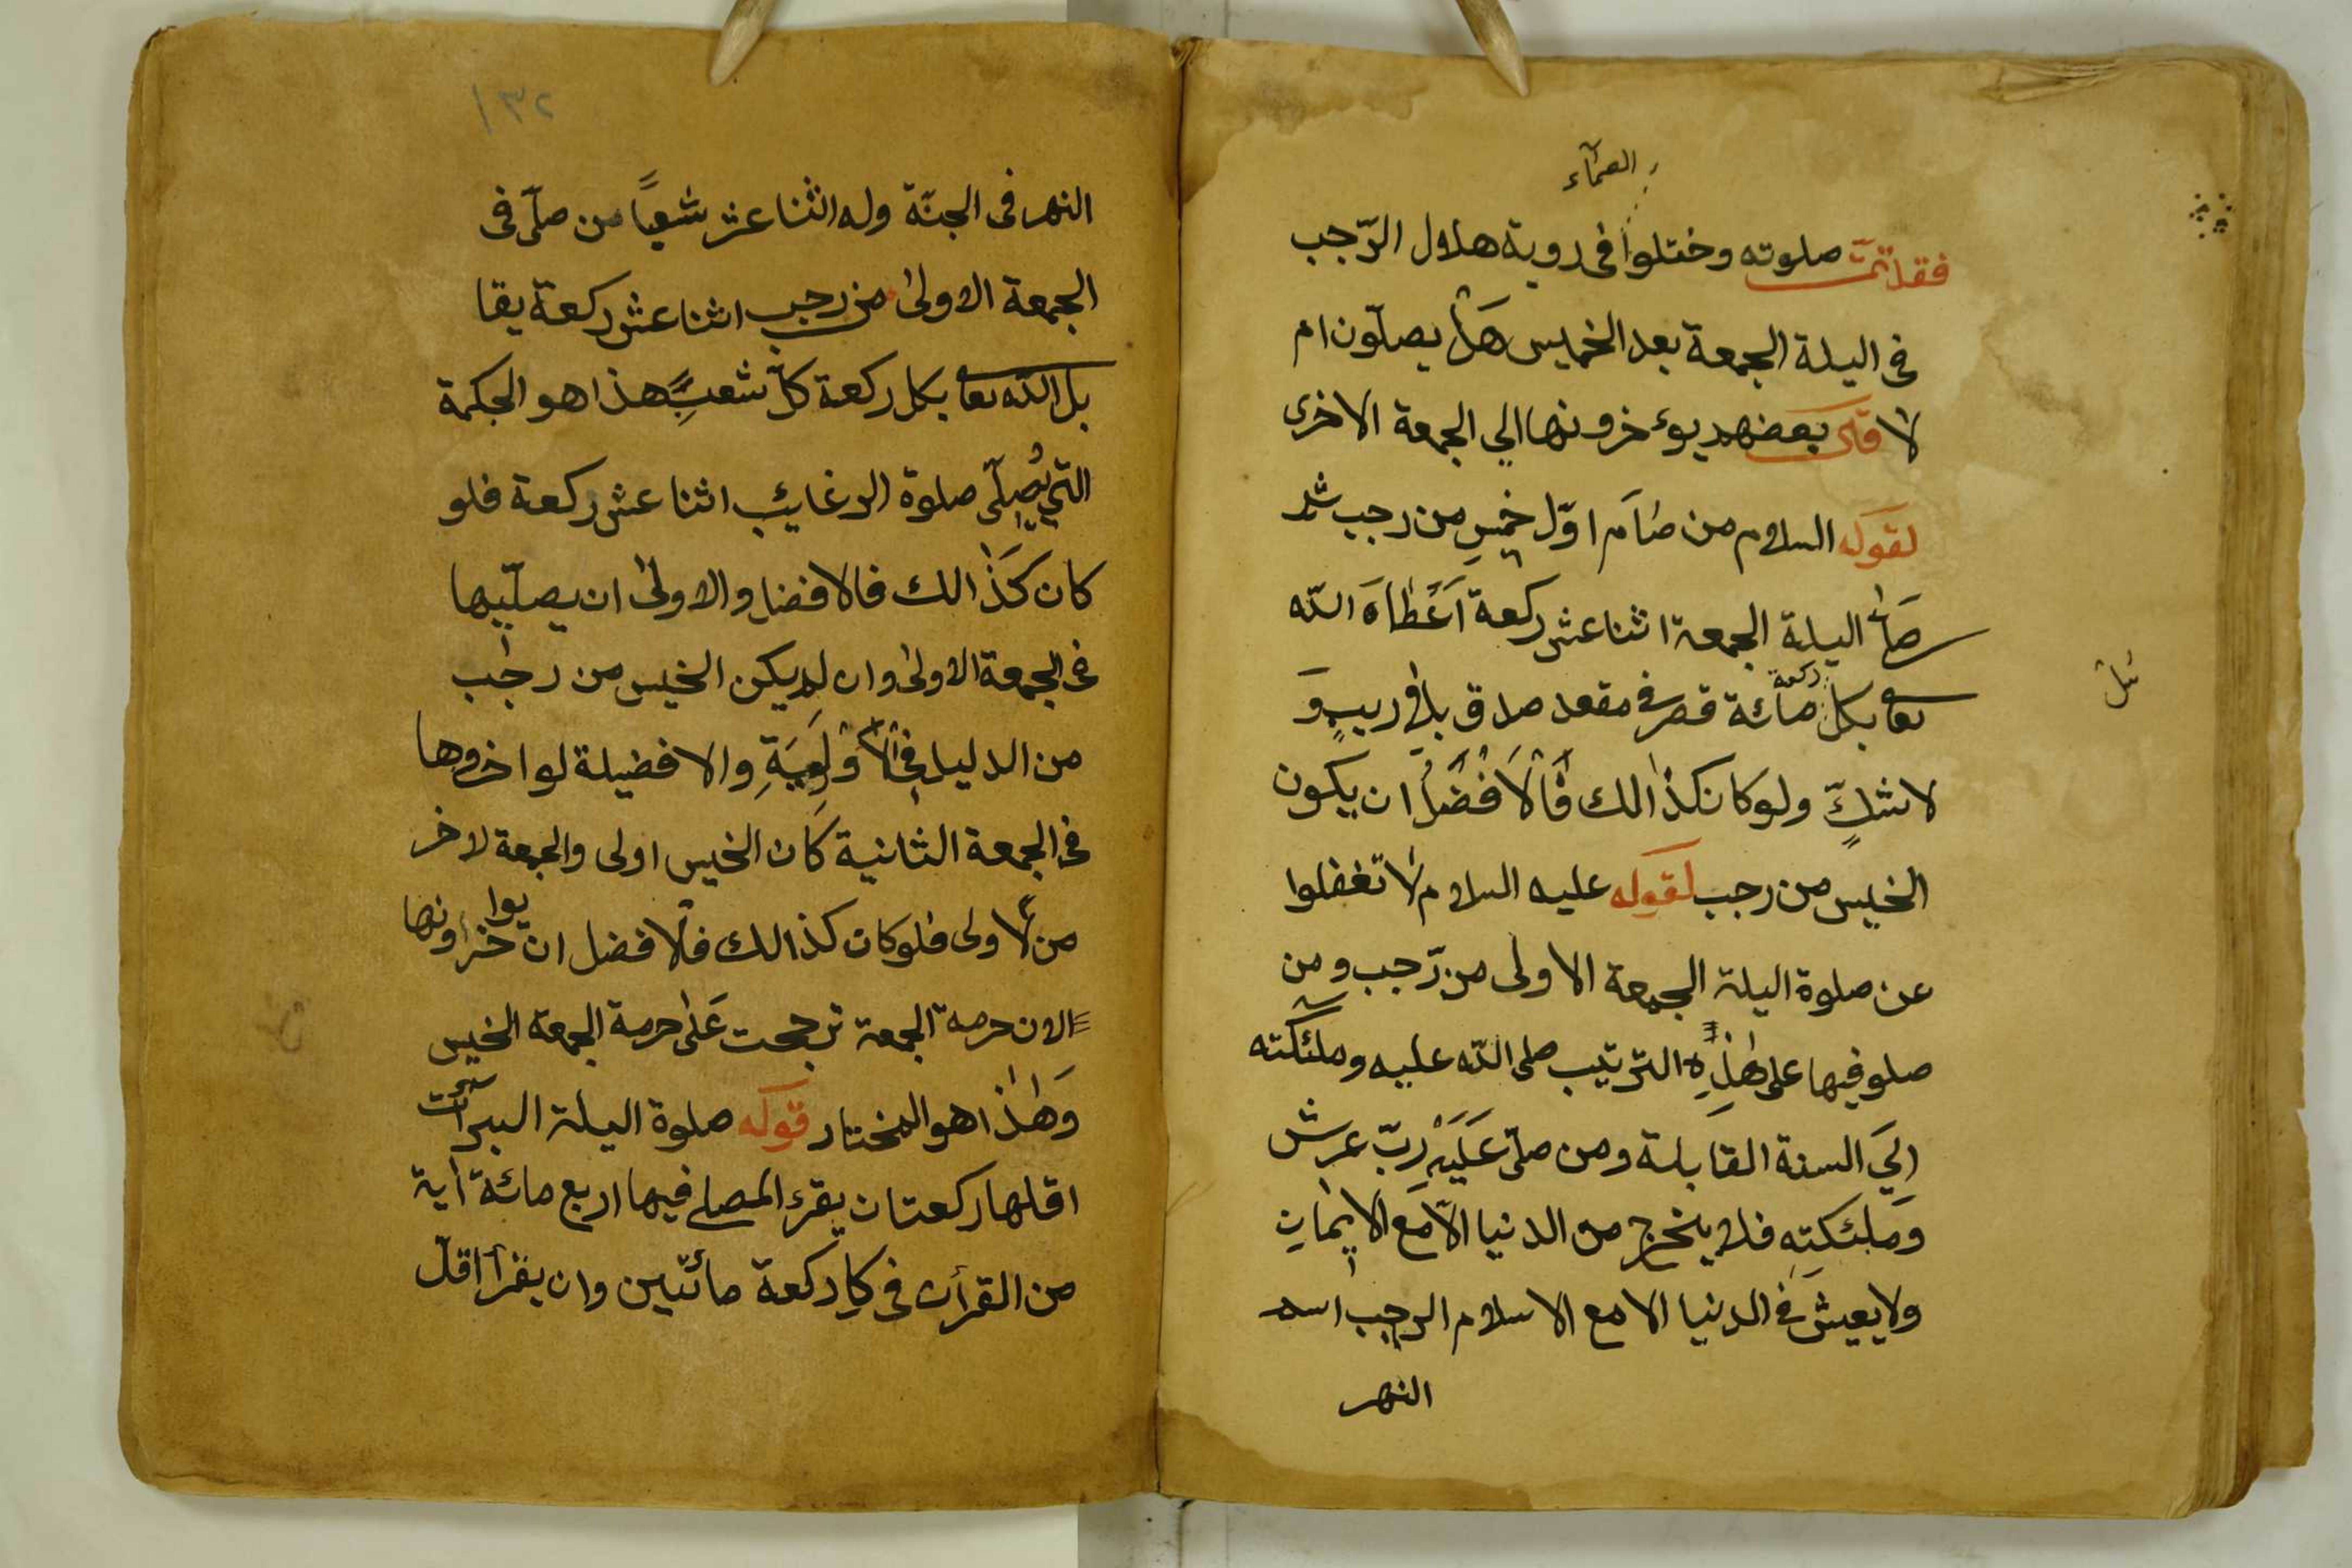 العمآء
فقد تمّت صلوته وختلوا فى روية هلال الرّجب
فى اليلة الجمعة بعد الخميس هَلْ يصلّون ام
لا قال بعضهم يوءخرونها الي الجمعة الاخرى
لقوله السلام من صَامَ اوّل خميسٍ من رجب ثم
صَلّى اليلة الجمعة اثنا عشر ركعة اَعْطَاهَ الله
تعا بكل ركعة مائة قصر فى مقعد صدق بلا ريبٍ وَ
لا شكٍّ ولو كان كذالك فَالْاَفْضَلُ ان يكون
الخميس من رجب لقوله عليه السلام لا تغفلوا
عن صلوة اليلة الجمعة الاولى من رّجب ومن
صلو فيها على هٰذِهِ الترتيب صلى الله عليه وملئكته
اِلَي السنة القابلة ومن صلّى عَلَيْهِ ربّ عرش
وَمَلئكتِهِ فلا يخرج من الدنيا الاّ مع الايمانِ
ولا يعيش فى الدنيا الا مع الاسلام الرجب اسم
النهر
١٣٢
النهر فى الجنّة وله اثنا عشر شعباً من صلّى فى
الجمعة الاولىٰ من رجب اثنا عشر ركعة يقا
بل الله تعا بكل ركعة كلّ شعبٍ هذا هو الحكمة
التي يُصلّى صلوة الرغايب اثنا عشر ركعة فلو
كان كَذٰالك فالافضل والاولىٰ ان يصلّيها
فى الجمعة الاولىٰ وان لم يكن الخميس من رجب
من الدليل فِى الْاَوْلَوِيَةِ والافضيلة لو اخروها
فى الجمعة الثانية كان الخميس اولى والجمعة لاخر
من لاولى فلو كان كذالك فلافضل ان يواخرونها
الان حرمة الجمعة ترجحت عَلىٰ حرمة الجمعة الخميس
وَهٰذا هو المختار قوله صلوة اليلة البرآت
اقلها ركعتان يقرء المصلى فيها اربع مائة أية
من القرأن فى كل ركعة مائتين وان يقرأ اقلّ